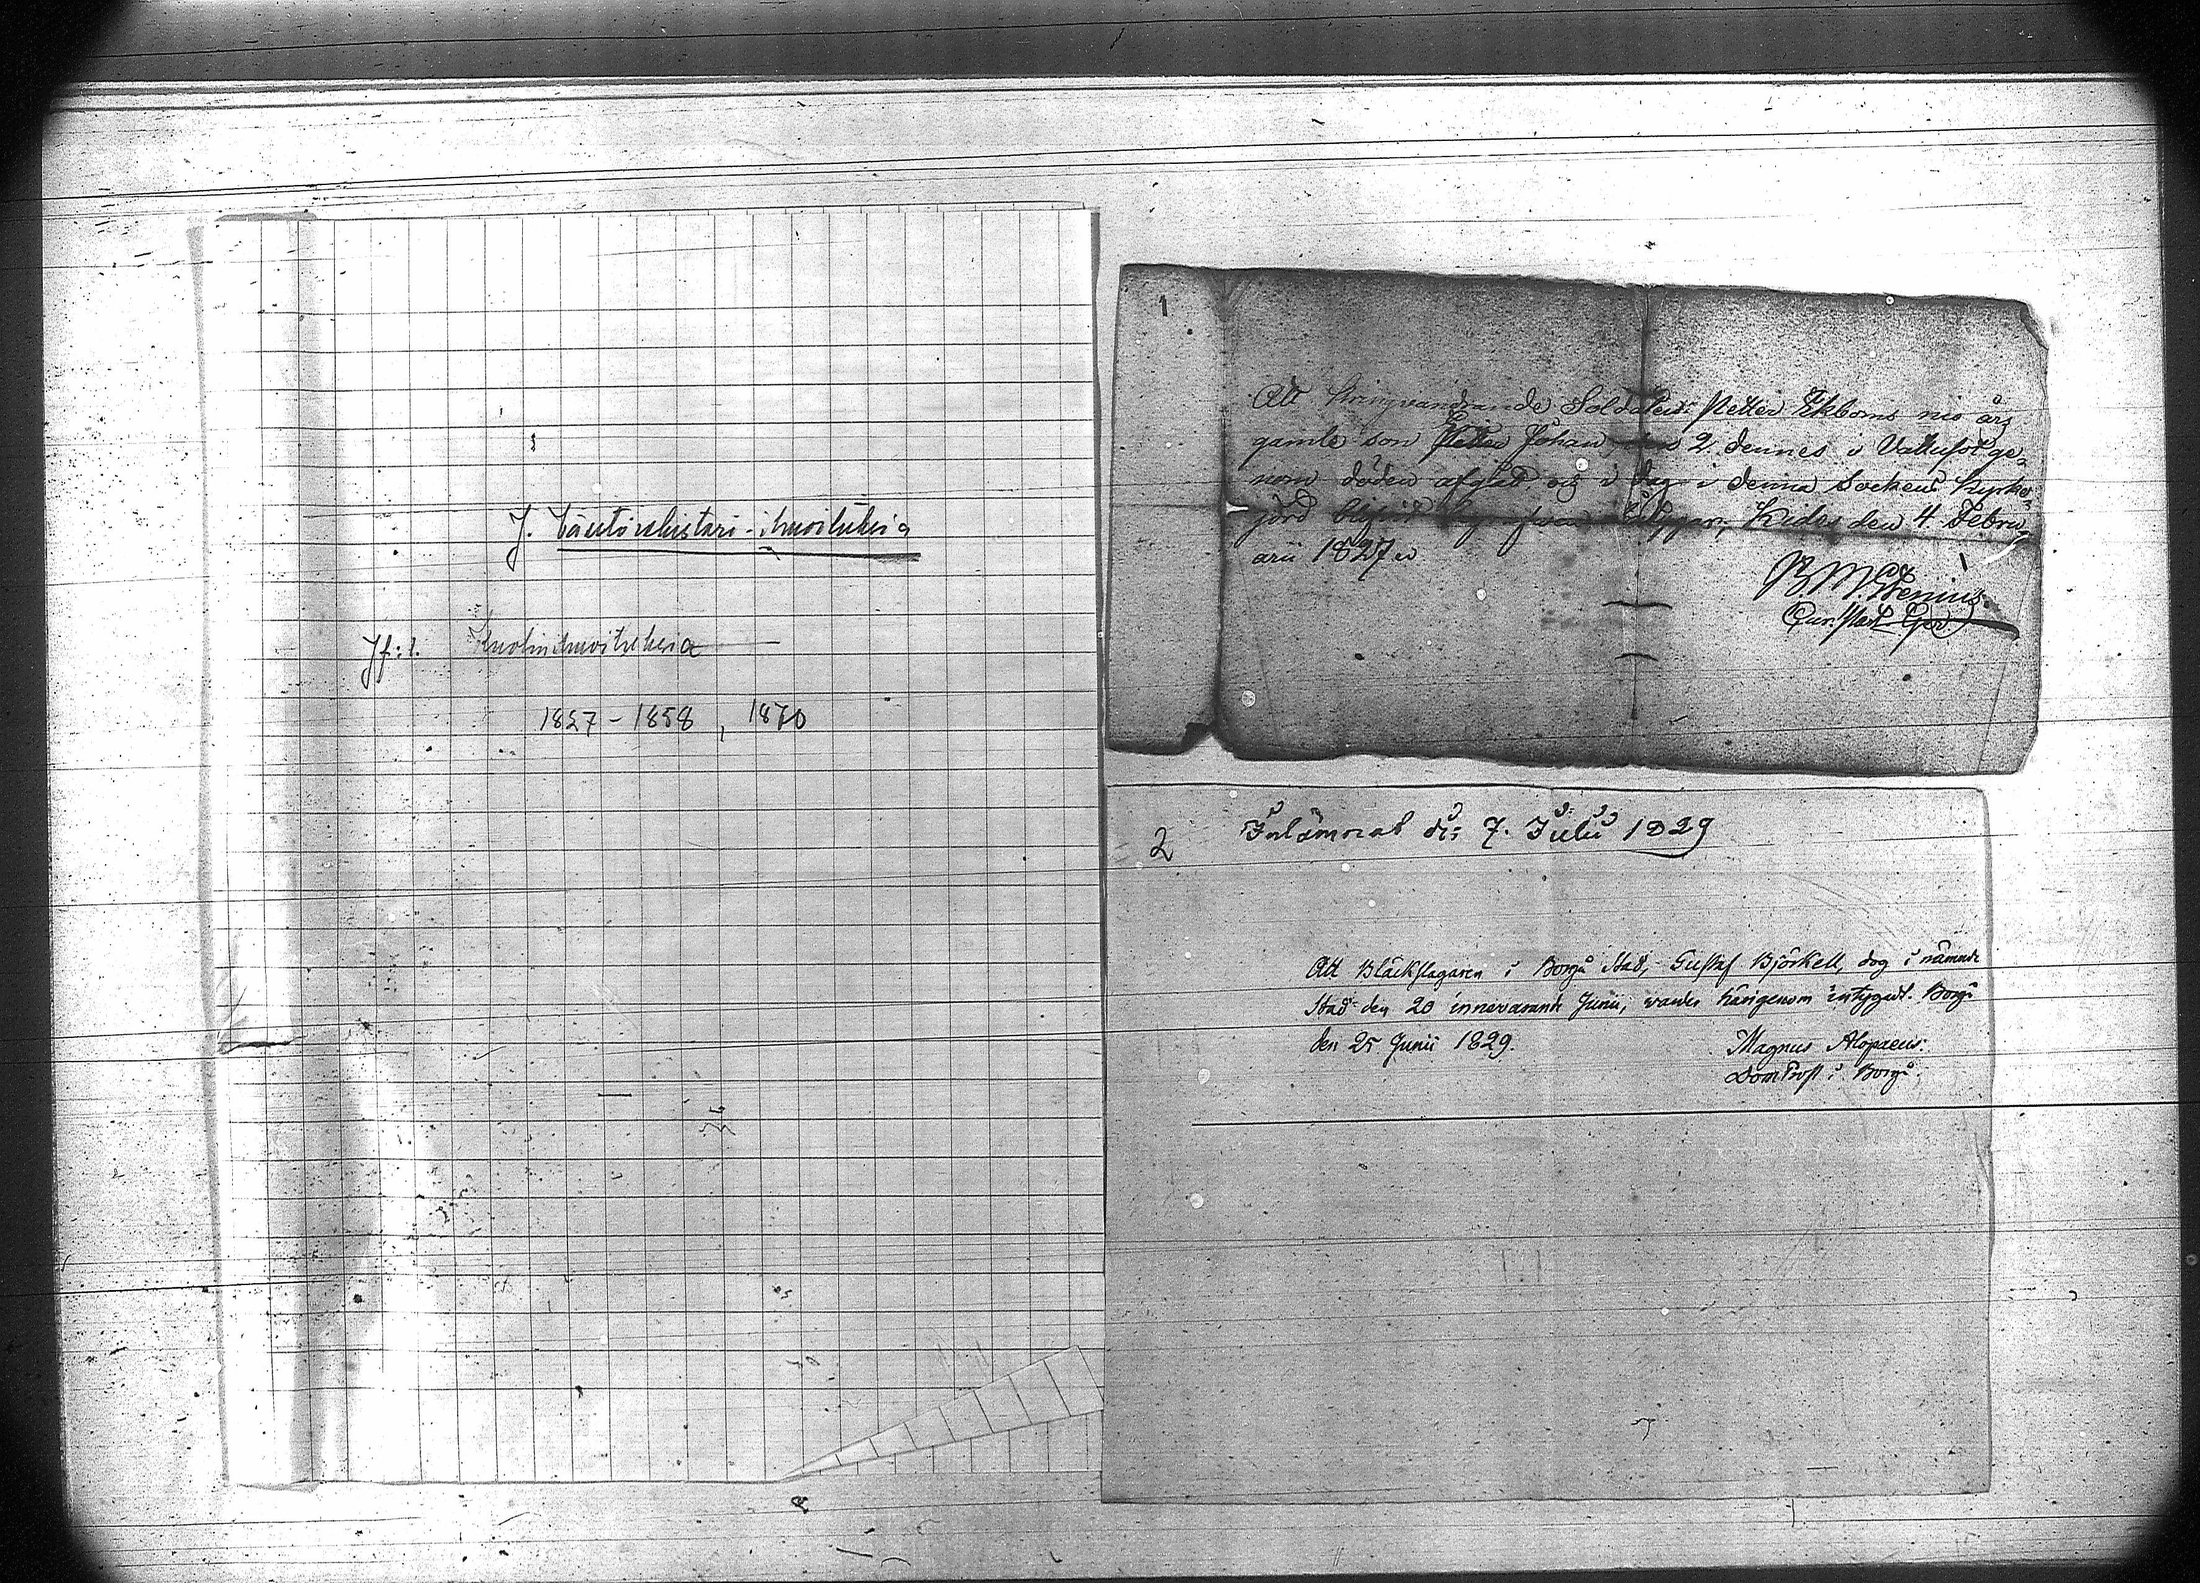 J. Väestörekisteri-ilmoituksia
Jf:1. Kuolinilmoituksia
1827-1858, 1870
1
Att kringvandrande Soldaten Petter Ekboms nio års
gamle son Petter Johan, 2 dennes i ge-
nom döden afgått och i dag i denna Sockens kyrko-
jord blifvit Kides den 4 Febru-
arii 1827
B. M. Stenius
2
Inlämnat d: 7. Julii 1829
Att Bläckslagaren i Borgå Stad, Gustaf Björkell, dog i nämnde
Stad den 20 innevarande Junii, warder härigenom intygadt. Borgå
den 25 Junii 1829.
Magnus Alopaeus.
DomProst i Borgå.